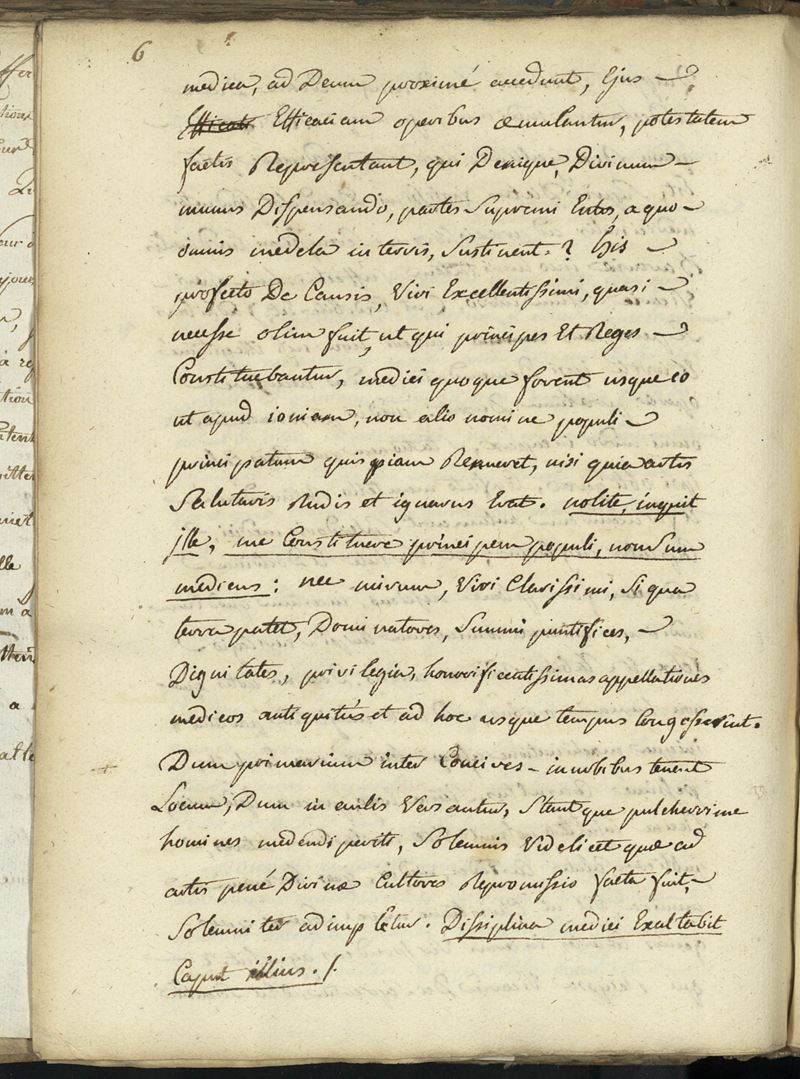 6
medica, ad Deum proximé accedunt, Ejus
Efficati Efficaciam operibus æmulantur, potestatem
factis Repræsentant, qui Denique, Divinum
munus Dispensando, partes Supremi Entis, a quo
omnis medela in terris, Sustinent.? his
profecto De Causis, Viri Excellentissimi, quasi
necesse olim fuit, ut qui principes Et Reges
Constituebantur, medici quoque forent usque eo
ut apud ioniam, non alio nomine populi
principatum quispiam Renueret, nisi quia artis
Salutaris Rudis et ignarus Erat. nolite, inquit
jlle, me Constituere principem populi, non Sum
medicus: nec mirum, Viri Clarissimi, Si qua
terra patet, Dominatores, Summi pontifices,
Dignitates, privilegia, honorificentissimas appellationes
medicos antiquitùs et ad hoc usque tempus Congesserint.
Dum primarium inter Concives - innobibus tenent
Locum, Dum in aulis Versantur, Stantque pulcherrime
homines medendi periti, Solemnis Videlicet quæ ad
artis pené Divinæ Cultores Repromissio facta fuit,
Solemniter adimpletur. Dissiplina medici Exaltabit
Caput illius. /.